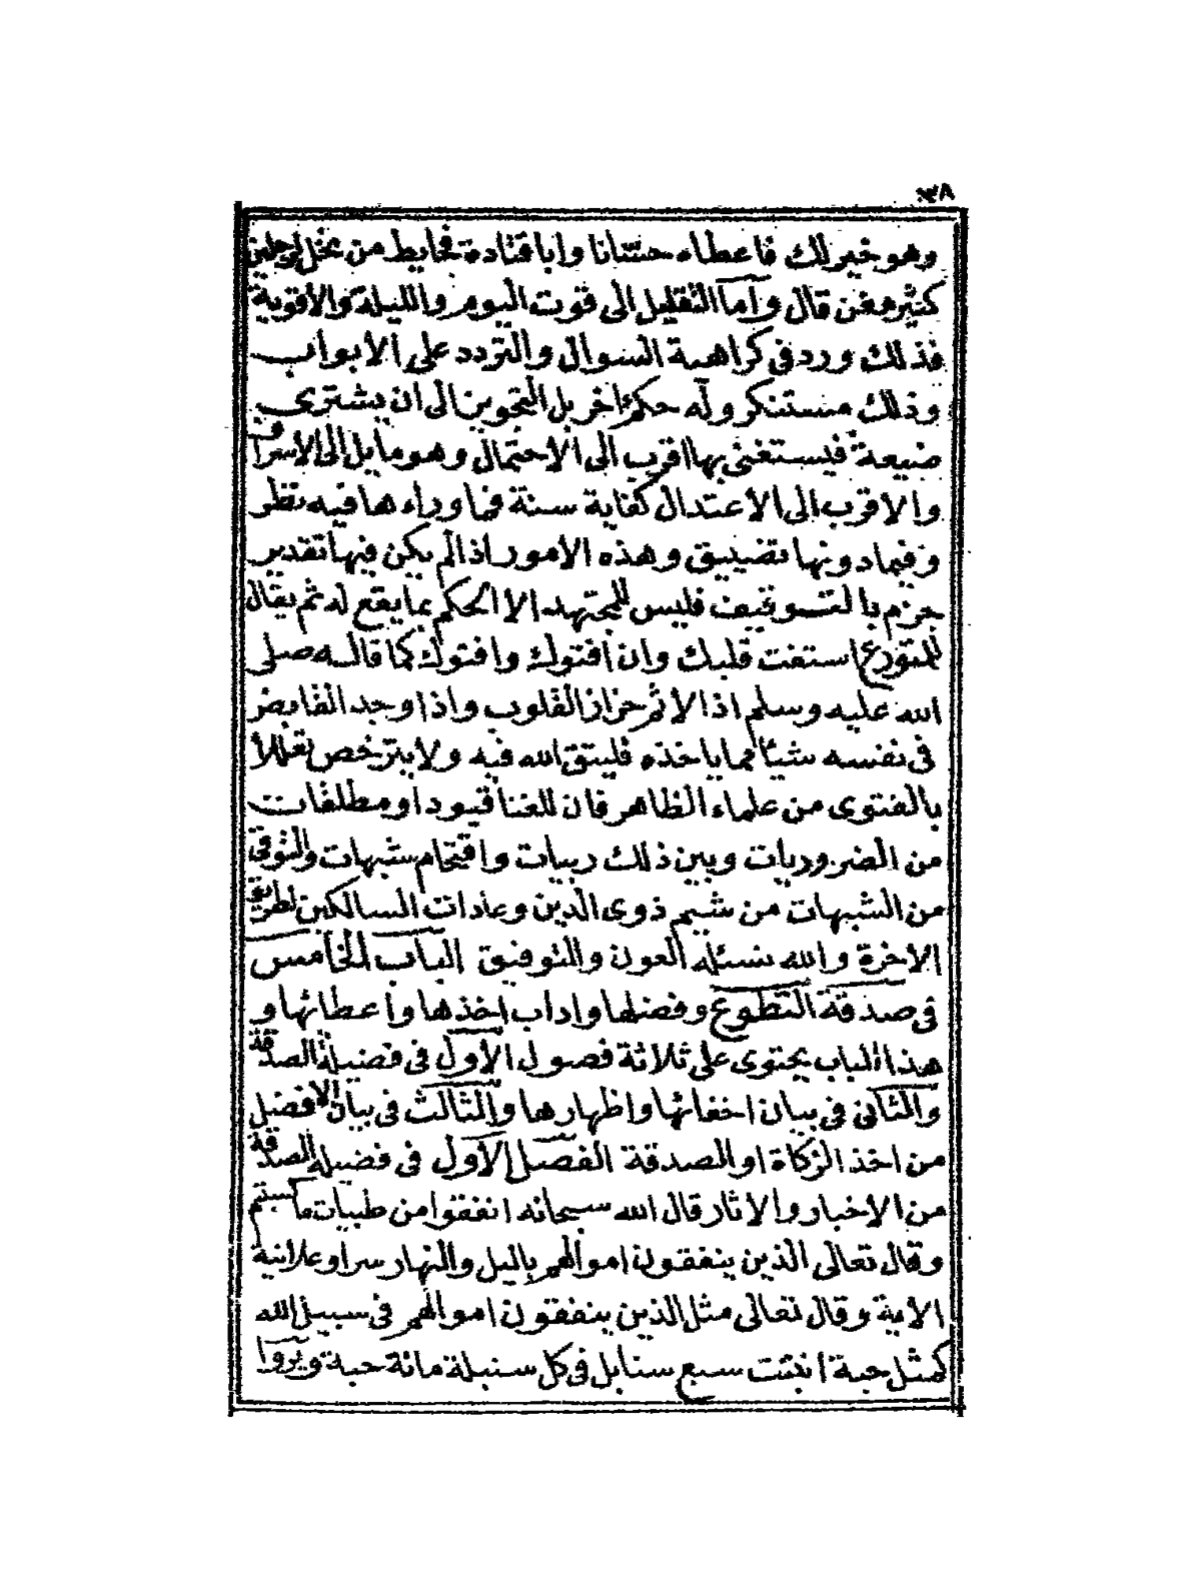 ٣٨
وهو خير لك فاعطاه حسانا وابا قتادة فحايط من نخل لرجلين
كثير مغن قال واما التقليل الى قوت اليوم والليلة والاوقية
فذلك ورد في كراهية السوال والتردد على الابواب
وذلك مستنكر وله حكم اخر بل التجويز الى ان يشتري
ضيعة فيستغني بها اقرب الى الاحتمال وهو مايل الى الاسراف
والاقرب الى الاعتدال كفاية سنة فما وراءها فيه نظر
وفيما دونها تضييق وهذه الامور اذا لم يكن فيها تقدير
جزم بالتوقيف فليس للمجتهد الا الحكم بما يقع له ثم يقال
للمتورع استفت قلبك وان افتوك وافتوك كما قاله صلى
الله عليه وسلم اذا الاثم حزاز القلوب واذا وجد القابض
في نفسه شيئا مما ياخذه فليتق الله فيه ولا يترخص تعللا
بالفتوى من علماء الظاهر فان للغنا قيود او مطلقات
من الضروريات وبين ذلك ريبات واقتحام شبهات والتوقي
من الشبهات من شيم ذوى الدين وعادات السالكين لطريق
الاخرة والله نسئله العون والتوفيق الباب الخامس
في صدقة التطوع وفضلها واداب اخذها واعطائها و
هذا الباب يحتوى على ثلاثة فصول الاول في فضيلة الصدقة
والثاني في بيان اخفائها واظهارها والثالث في بيان الافضل
من اخذ الزكاة او الصدقة الفصل الاول في فضيلة الصدقة
من الاخبار والاثار قال الله سبحانه انفقوا من طيبات ما كسبتم
وقال تعالى الذين ينفقون اموالهم باليل والنهار سرا وعلانية
الاية وقال تعالى مثل الذين ينفقون اموالهم في سبيل الله
كمثل حبة انبتت سبع سنابل في كل سنبلة مائة حبة ويروا